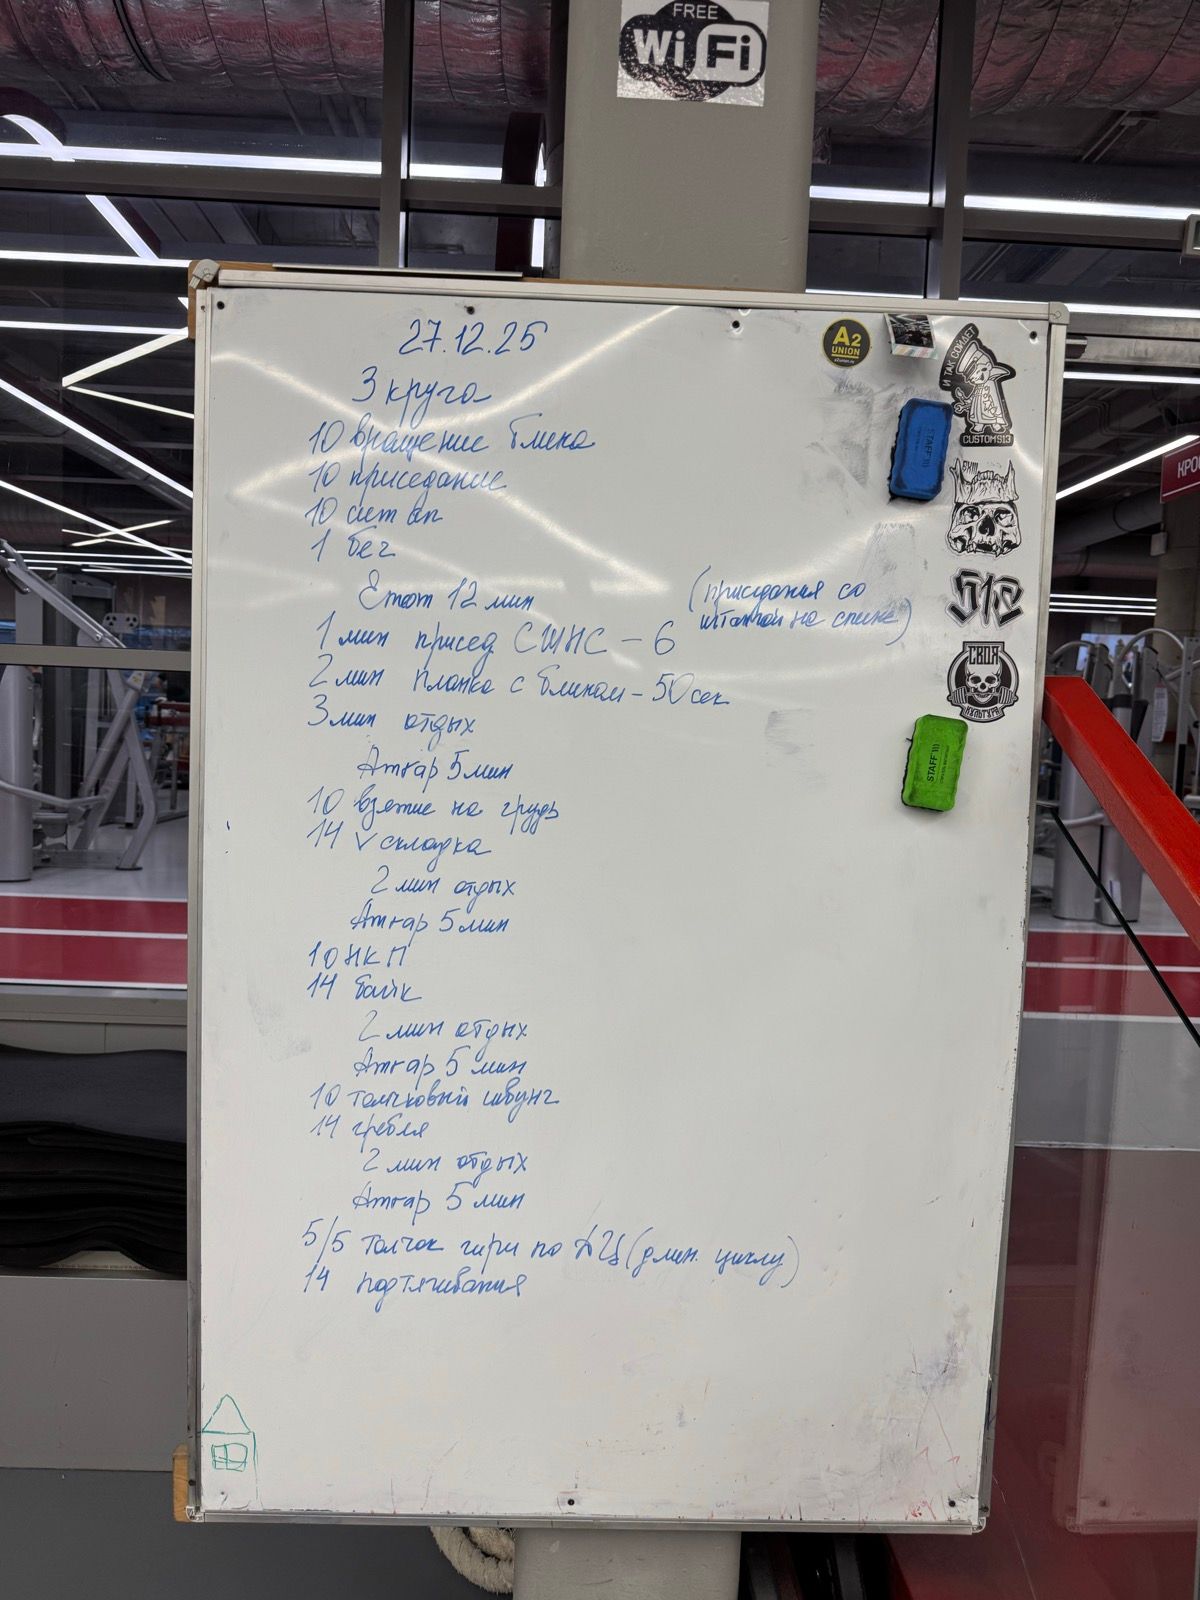 FREE
WiFi
27.12.25
3 круга
10 вращение блина
10 приседание
10 сит ап
1 бег
Етот 12 мин
(приседания со
штангой на спине)
1 мин присед СШНС - 6
2 мин планка с блином - 50 сек
3 мин отдых
Атгар 5 мин
10 взятие на грудь
14 V складка
2 мин отдых
Атгар 5 мин
10 НКП
14 байк
2 мин отдых
Атгар 5 мин
10 толчковый швунг
14 гребля
2 мин отдых
Атгар 5 мин
5/5 толчок гири по ДЦ (длин. циклу)
14 подтягивания
A2
UNION
a2union.ru
И ТАК СОЙДЕТ
CUSTOMS13
STAFF
512
СВОЯ
КУЛЬТУРА
STAFF
КРО